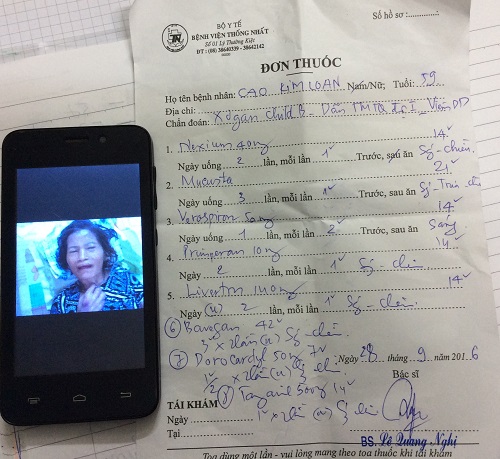 Số hồ sơ :
BỘ Y TẾ
BỆNH VIỆN THỐNG NHẤT
Số 01 Lý Thường Kiệt
ĐT : (08) 38640339 - 38642142
ĐƠN THUỐC
Họ tên bệnh nhân: CAO KIM LOAN Nam/Nữ; Tuổi: 59
Địa chỉ:
Chẩn đoán: Xơ gan child B - Dãn TMTQ độ I - Viêm DD
1. Nexium 40mg 14v
Ngày uống 2 lần, mỗi lần 1v Trước, sau ăn Sg - chiều
2. Mucosta 21v
Ngày uống 3 lần, mỗi lần 1v Trước, sau ăn Sg - Trưa
3. Verospiron 50mg 14v
Ngày uống 1 lần, mỗi lần 2v Trước, sau ăn Sáng
4. Primperan 10mg 14v
Ngày 2 lần, mỗi lần 1v Sg chiều
5. 140mg 14v
Ngày (u) 2 lần, mỗi lần 1v Sg - chiều
6 42v
3v x 2 lần (u) Sg - chiều
7 Dorocardyl 7v
1/2v x 2 lần (u) Sg chiều
Ngày 28 tháng 9 năm 2016
8 500mg 14v
1v x 2 lần (u) Sg chiều
Bác sĩ
TÁI KHÁM
Ngày
Tại
BS. Lê Quang Nghị
Toa dùng một lần - vui lòng mang theo toa thuốc khi tái khám